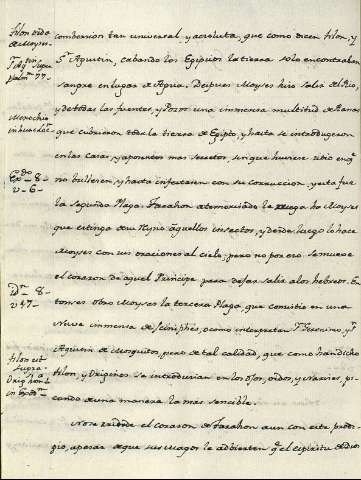 Filon vida
de Moyses.
S. Agustin, cabando los Egipcios la tierra solo encontraban
sangre en lugar de Agua. Despues Moyses hizo salir del Rio,
y de todas las fuentes, y Pozos una inmensa multitud de Ranas
que cubrieron toda la tierra de Egipto, y hasta se introdugeron
en las Casas, y aposentos mas secretos, sin que huviese sitio en q.
no bullesen, y hasta infestaron con su corrupcion, y esta fue
Exdo 8-
v-6-
la segunda Plaga. Farahon atemorizado le ruega a Moyses
que estinga de su Reyno aquellos insectos, y desde luego lo hace
Moyses con sus oraciones al cielo; pero no por eso se mueve
el corazon de aquel Principe para dejar salir a los hebreos. En-
Dn 8-
v 17-
tonces obro Moyses la tercera Plaga, que consistio en una
Nuve inmensa de Sciniphes, o como interpretan Sn Geronimo, y Sn
Agustin de Mosquitos, pero de tal calidad, que como han dicho
Filon ubi
supra.
Filon, y Origenes se introducian en los Ojos, oidos, y Narices, pi-
cando de una manera la mas sencible.
No se rinde el corazon de Faraon aun con este prodi-
gio, apesar de que sus magos le advierten q.e el espiritu de Dios